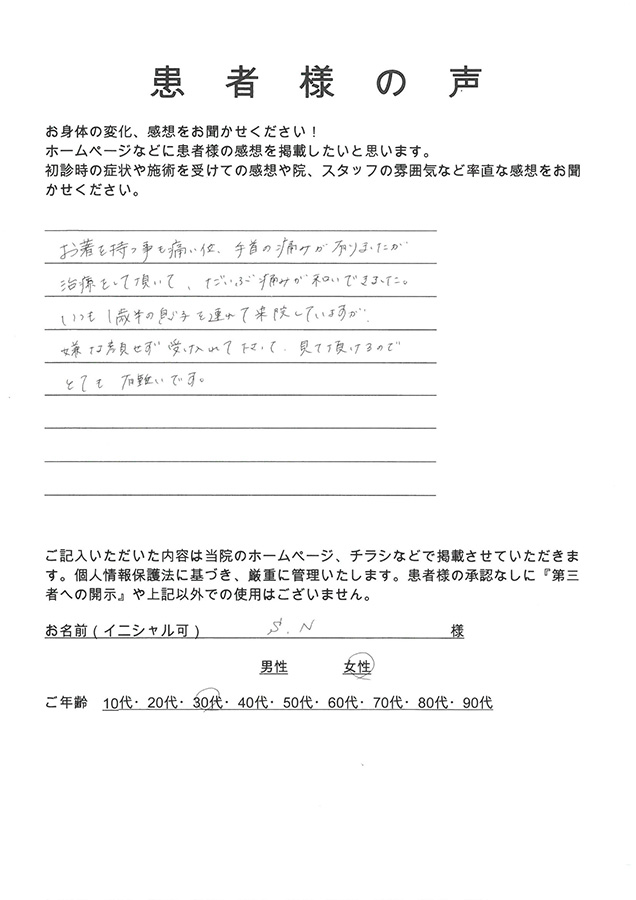 患者様の声
お身体の変化、感想をお聞かせください！
ホームページなどに患者様の感想を掲載したいと思います。
初診時の症状や施術を受けての感想や院、スタッフの雰囲気など率直な感想をお聞
かせください。
お箸を持つ事も痛い位、手首の痛みが有りましたが
治療をして頂いて、だいぶ痛みが和いできました。
いつも1歳半の息子を連れて来院していますが、
嫌な顔せず受け入れて下さって、見て頂けるので
とても有難いです。
ご記入いただいた内容は当院のホームページ、チラシなどで掲載させていただきま
す。個人情報保護法に基づき、厳重に管理いたします。患者様の承認なしに『第三
者への開示』や上記以外での使用はございません。
お名前（イニシャル可） S.N 様
男性 女性
ご年齢 10代・20代・30代・40代・50代・60代・70代・80代・90代